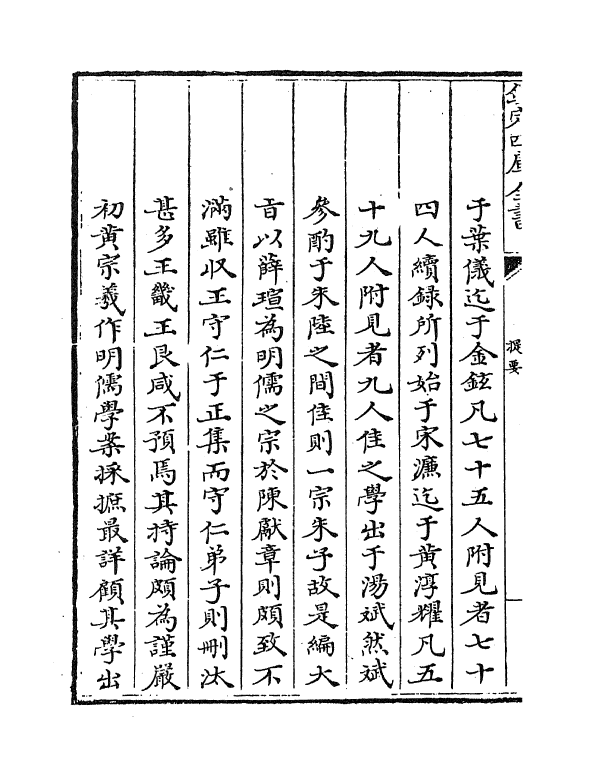 欽定四庫全書
提要
于葉儀迄于金鉉凡七十五人附見者七十
四人續録所列始于宋濂迄于黄淳耀凡五
十九人附見者九人佳之學出于湯斌然斌
參酌于朱陸之間佳則一宗朱子故是編大
㫖以薛瑄為明儒之宗於陳獻章則頗致不
滿雖收王守仁于正集而守仁弟子則刪汰
甚多王畿王艮咸不預焉其持論頗為謹嚴
初黄宗羲作明儒學案採摭最詳顧其學出